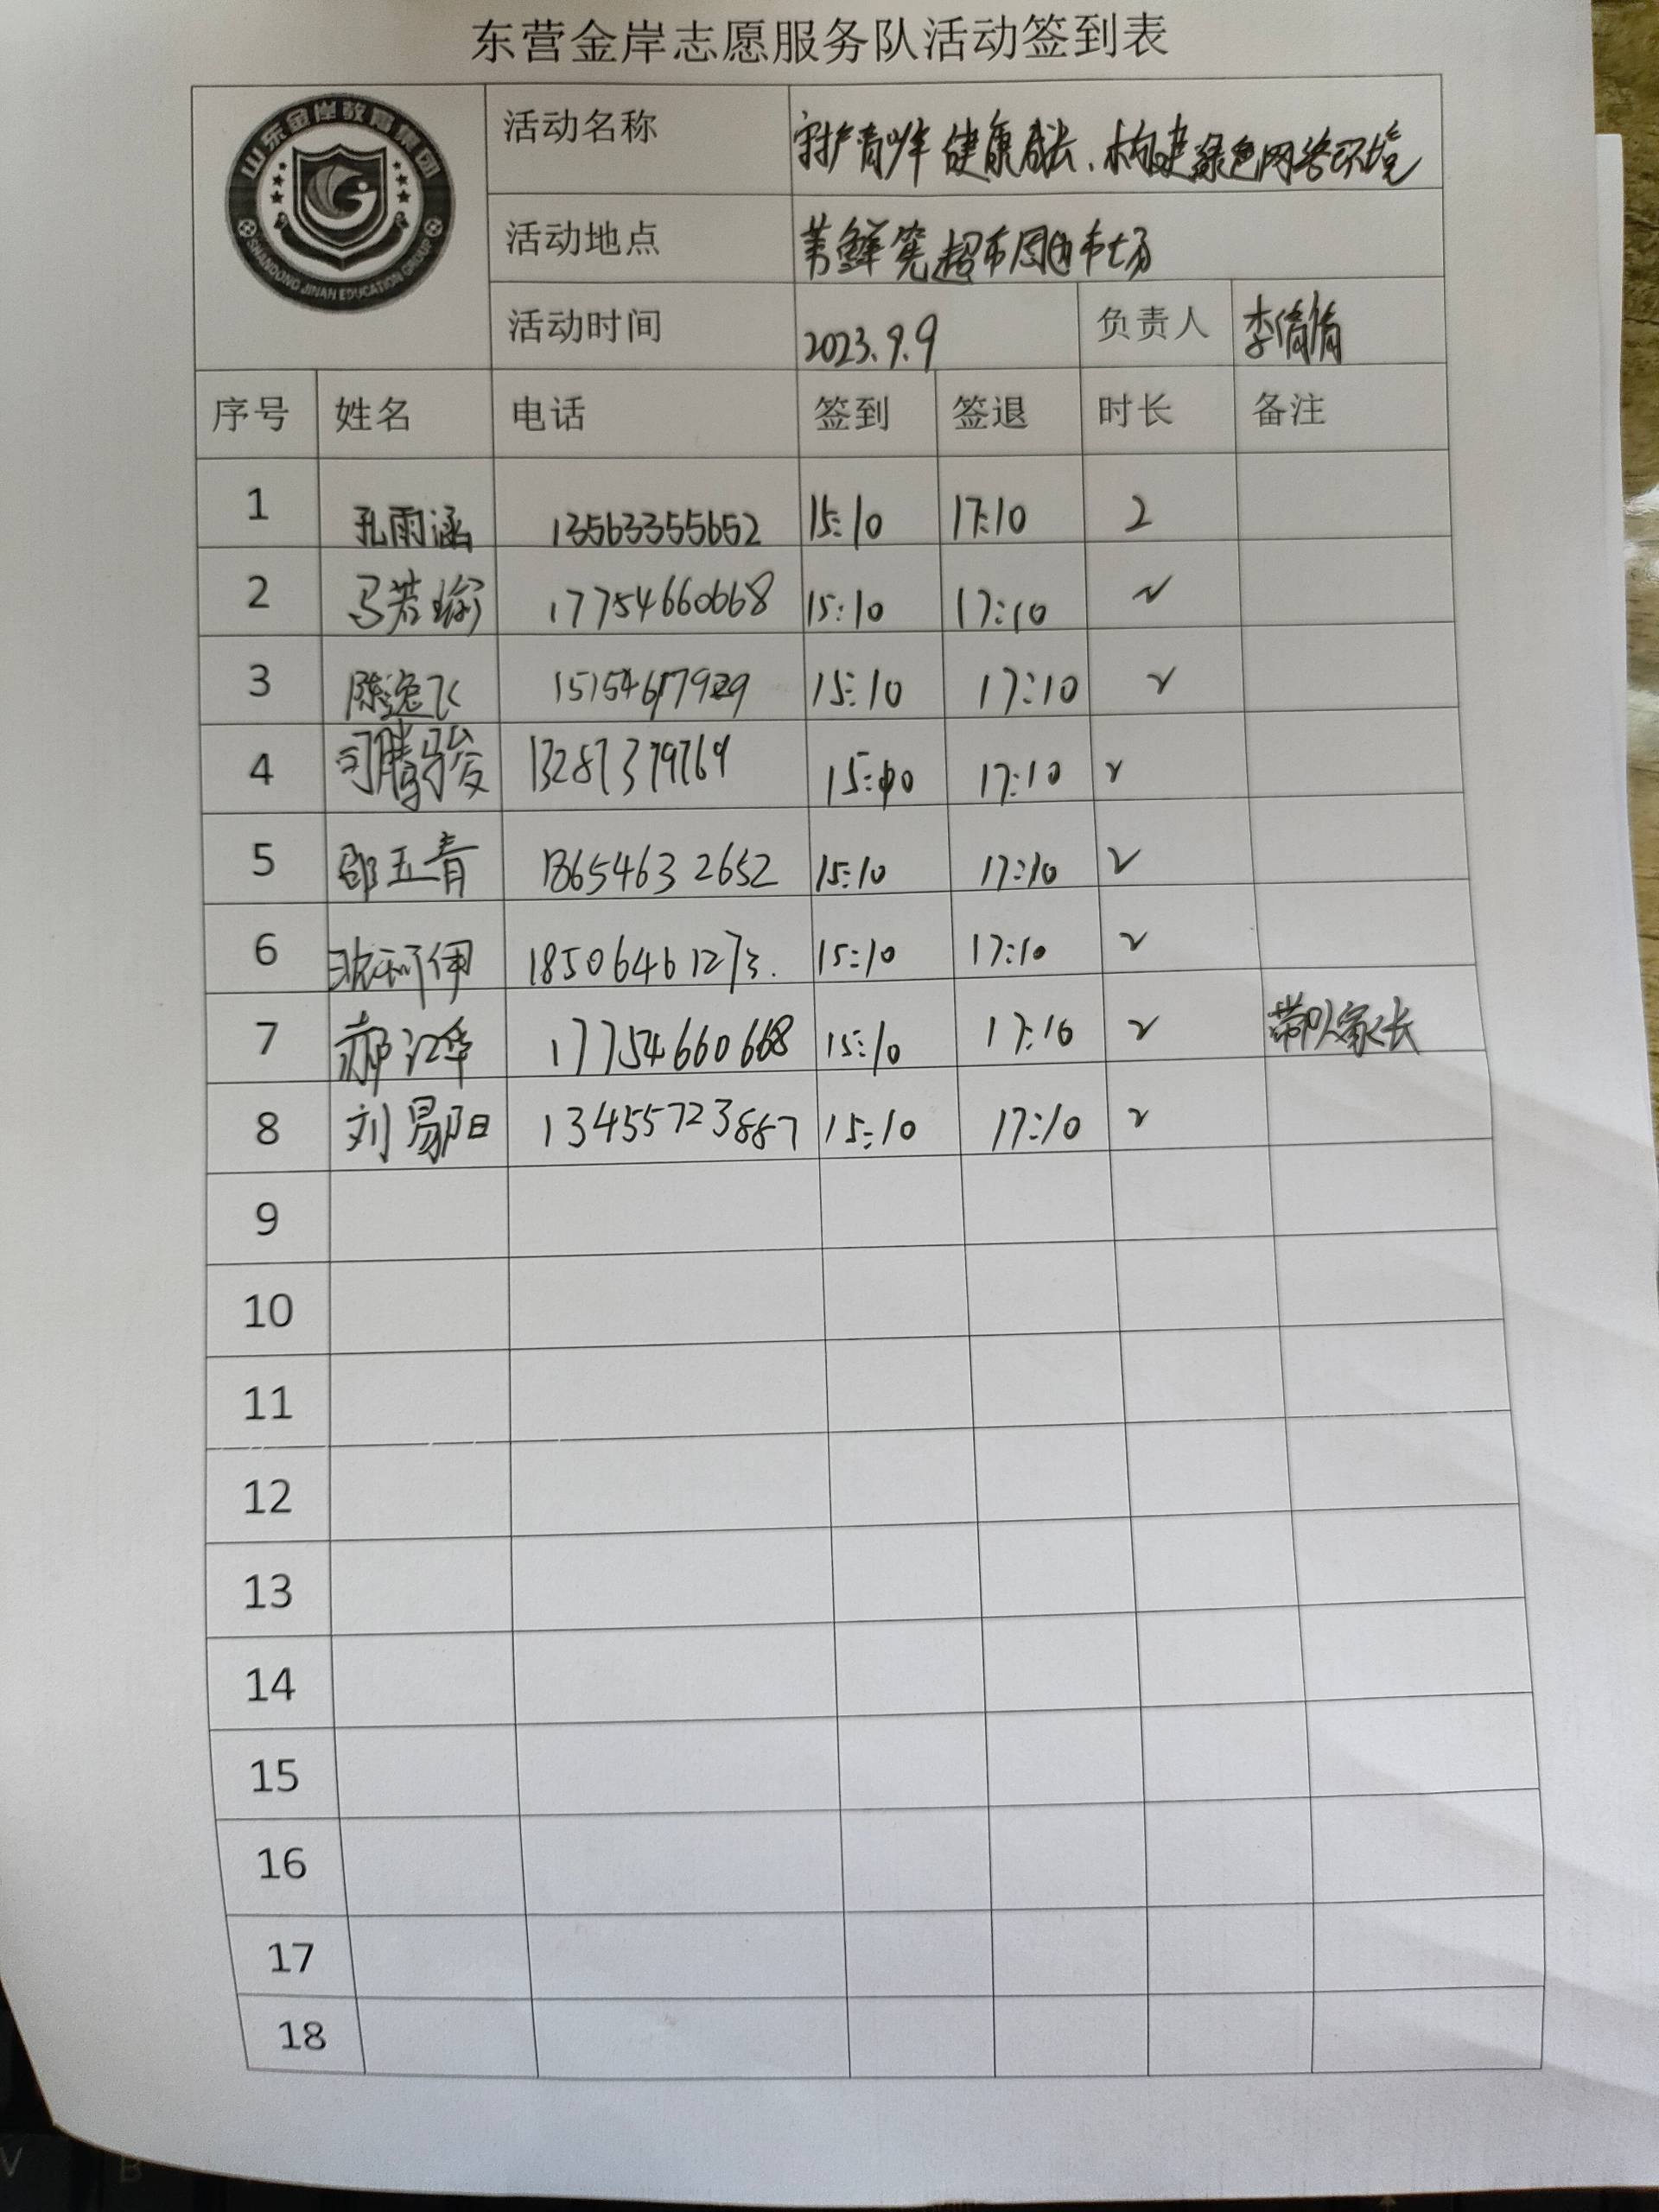 东营金岸志愿服务队活动签到表
山东金岸教育集团
SHANDONG JINAN EDUCATION GROUP
活动名称 守护青少年健康成长、构建绿色网络环境
活动地点 超市周边市场
活动时间 2023.9.9 负责人 李倩倩
序号 姓名 电话 签到 签退 时长 备注
1 孔雨涵 13563355652 15:10 17:10 2
2 马若瑜 17754660668 15:10 17:10 2
3 陈逸飞 15:10 17:10 2
4 司腾骏 13287379769 15:10 17:10 2
5 邵玉青 18654632652 15:10 17:10 2
6 18506461273. 15:10 17:10 2
7 郝江华 17754660668 15:10 17:10 2 带队家长
8 刘易阳 13455723887 15:10 17:10 2
9
10
11
12
13
14
15
16
17
18
V
B